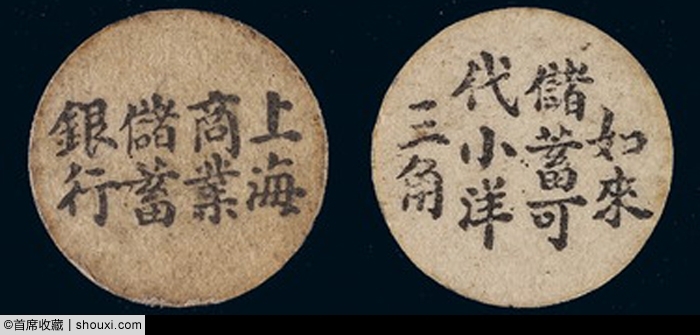 上海
商業
儲蓄
銀行
如來
儲蓄可
代小洋
三角
©首席收藏 | shouxi.com